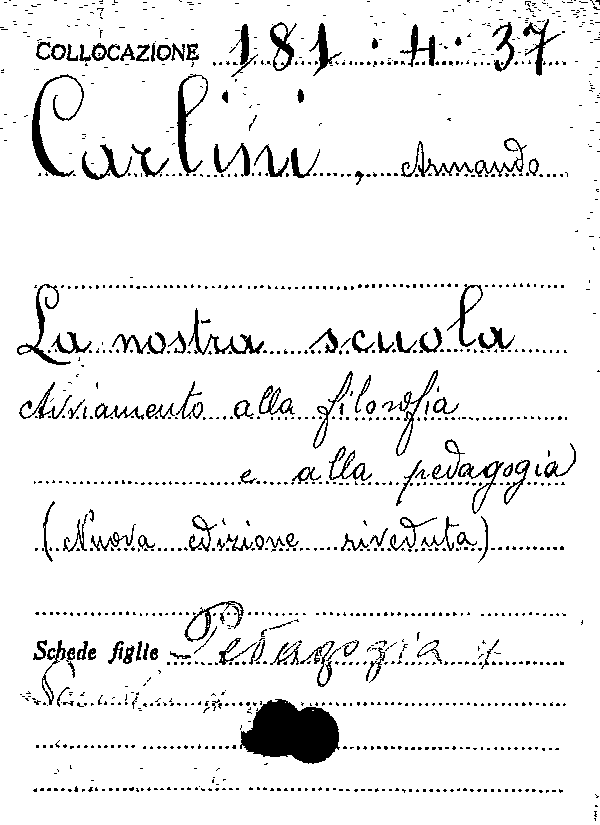 COLLOCAZIONE 181.4.37
Carlini, Armando
La nostra scuola
Avviamento alla filosofia
e alla pedagogia
(Nuova edizione riveduta)
Schede figlie Pedagogia